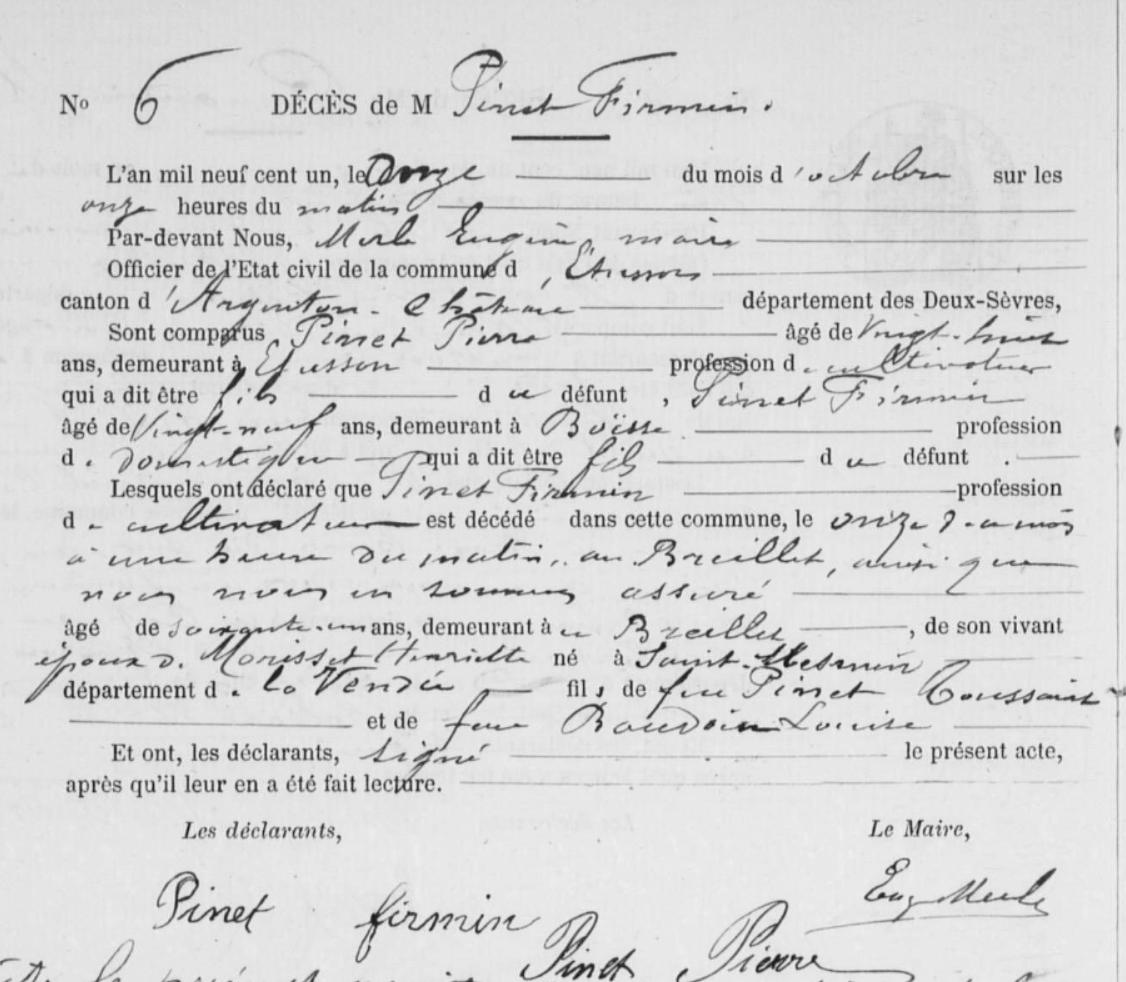 N° 6 DÉCÈS de M Pinet Firmin.
L'an mil neuf cent un, le onze du mois d'octobre sur les
onze heures du matin
Par-devant Nous, Merle Eugène, maire
Officier de l'Etat civil de la commune d'Etusson
canton d'Argenton-Château département des Deux-Sèvres,
Sont comparus Pinet Pierre âgé de vingt-huit
ans, demeurant à Etusson profession de cultivateur
qui a dit être fils du défunt, Pinet Firmin
âgé de vingt-neuf ans, demeurant à Boësse profession
de domestique qui a dit être fils du défunt.
Lesquels ont déclaré que Pinet Firmin profession
de cultivateur est décédé dans cette commune, le onze de ce mois
à une heure du matin, au Breillet, ainsi que
nous nous en sommes assuré
âgé de soixante-un ans, demeurant au Breillet, de son vivant
époux de Morisset Henriette né à Saint-Mesmin
département de la Vendée fils de feu Pinet Toussaint
et de feue Baudoin Louise
Et ont, les déclarants, signé le présent acte,
après qu'il leur en a été fait lecture.
Les déclarants, Le Maire,
Pinet firmin Eug Merle
Pinet Pierre